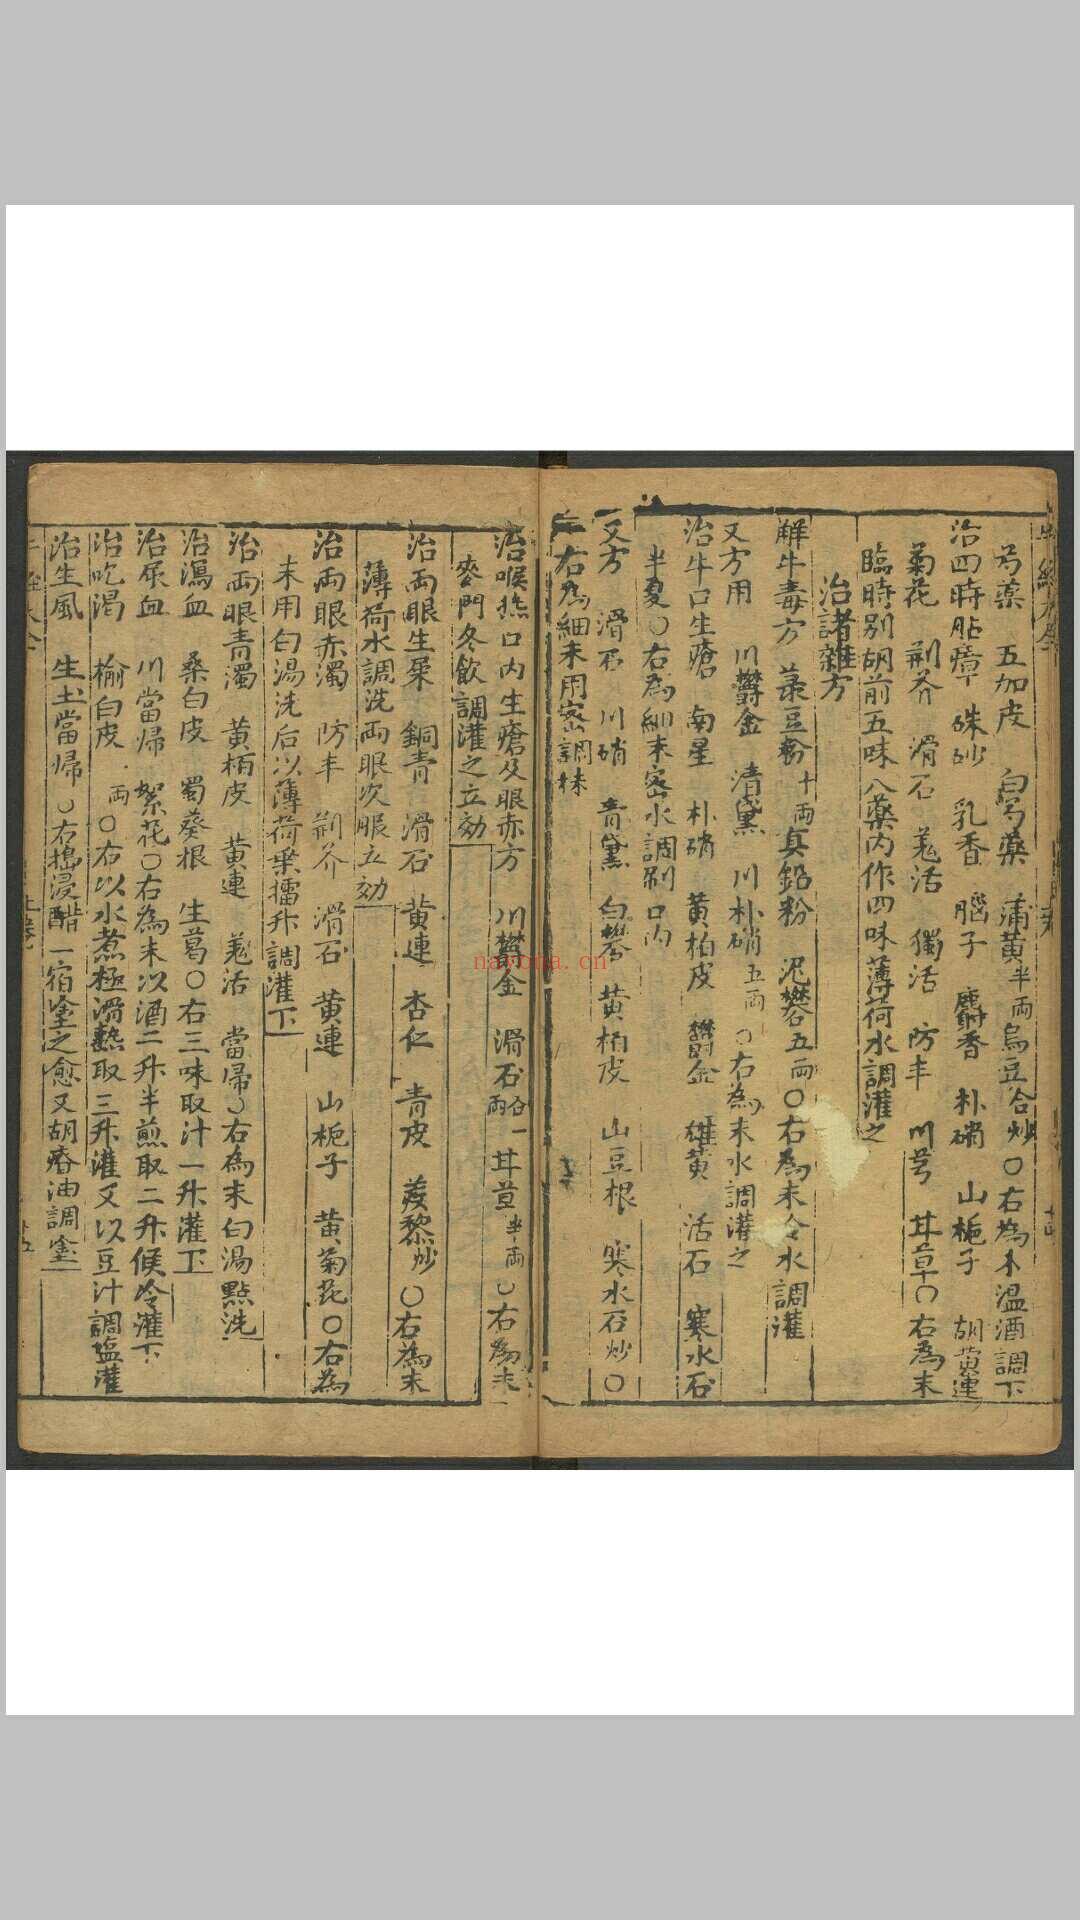 芍藥　五加皮　白芍藥　蒲黃半両烏豆合炒〇右為末温酒調下
治四時胋瘴　硃砂　乳香　腦子　麝香　朴硝　山梔子　胡黄連
菊花　荆芥　滑石　羗活　獨活　防丰　川芎　甘草〇右為末
臨時别胡前五味八藥内作四味薄荷水調灌之
治諸雜方
解牛毒方　菉豆粉十両真鉛粉　泥礬五両〇右為末冷水調灌
又方用　川欝金　清黛　川朴硝五両〇右為末水調灌之
治牛口生瘡　南星　朴硝　黄柏皮　欝金　雄黄　活石　寒水石
半夏〇右為細末宻水調刷口内
又方　滑石　川硝　青黛　白礬　黄柏皮　山豆根　寒水石炒〇
右為細末用宻調抹
治喉㷊口内生瘡及眼赤方　川欝金　滑石各一両　甘草半両〇右為末
麥門冬飲調灌之立効
治両眼生屎　銅青　滑石　黄連　杏仁　青皮　蒺藜炒〇右為末
薄荷水調洗両眼次服立効
治両眼赤濁　防丰　荆芥　滑石　黄連　山梔子　黄菊花〇右為
末用白湯洗后以薄荷葉擂汁調灌下
治両眼青濁　黄栢皮　黄連　羗活　當帰〇右為末白湯點洗
治瀉血　桑白皮　蜀葵根　生葛〇右三味取汁一升灌下
治尿血　川當帰　絮花〇右為末以酒二升半煎取二升候冷灌下
治吃渴　榆白皮　両〇右以水煮極滑熱取三升灌又以豆汁調塩灌
治生風　生土當帰〇右搗浸醋一宿塗之愈又胡麻油調塗
nayona.cn